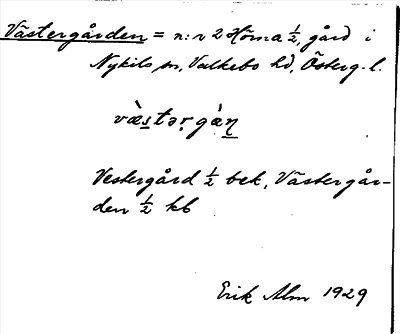 Västergården = n:r 2 Höma ½, gård i
Nykils sn, Valkebo hd, Österg. l.
væ̀stər gȧ̀n
Vestergård ½ bek, Västergår-
den ½ kb
Erik Alm 1929